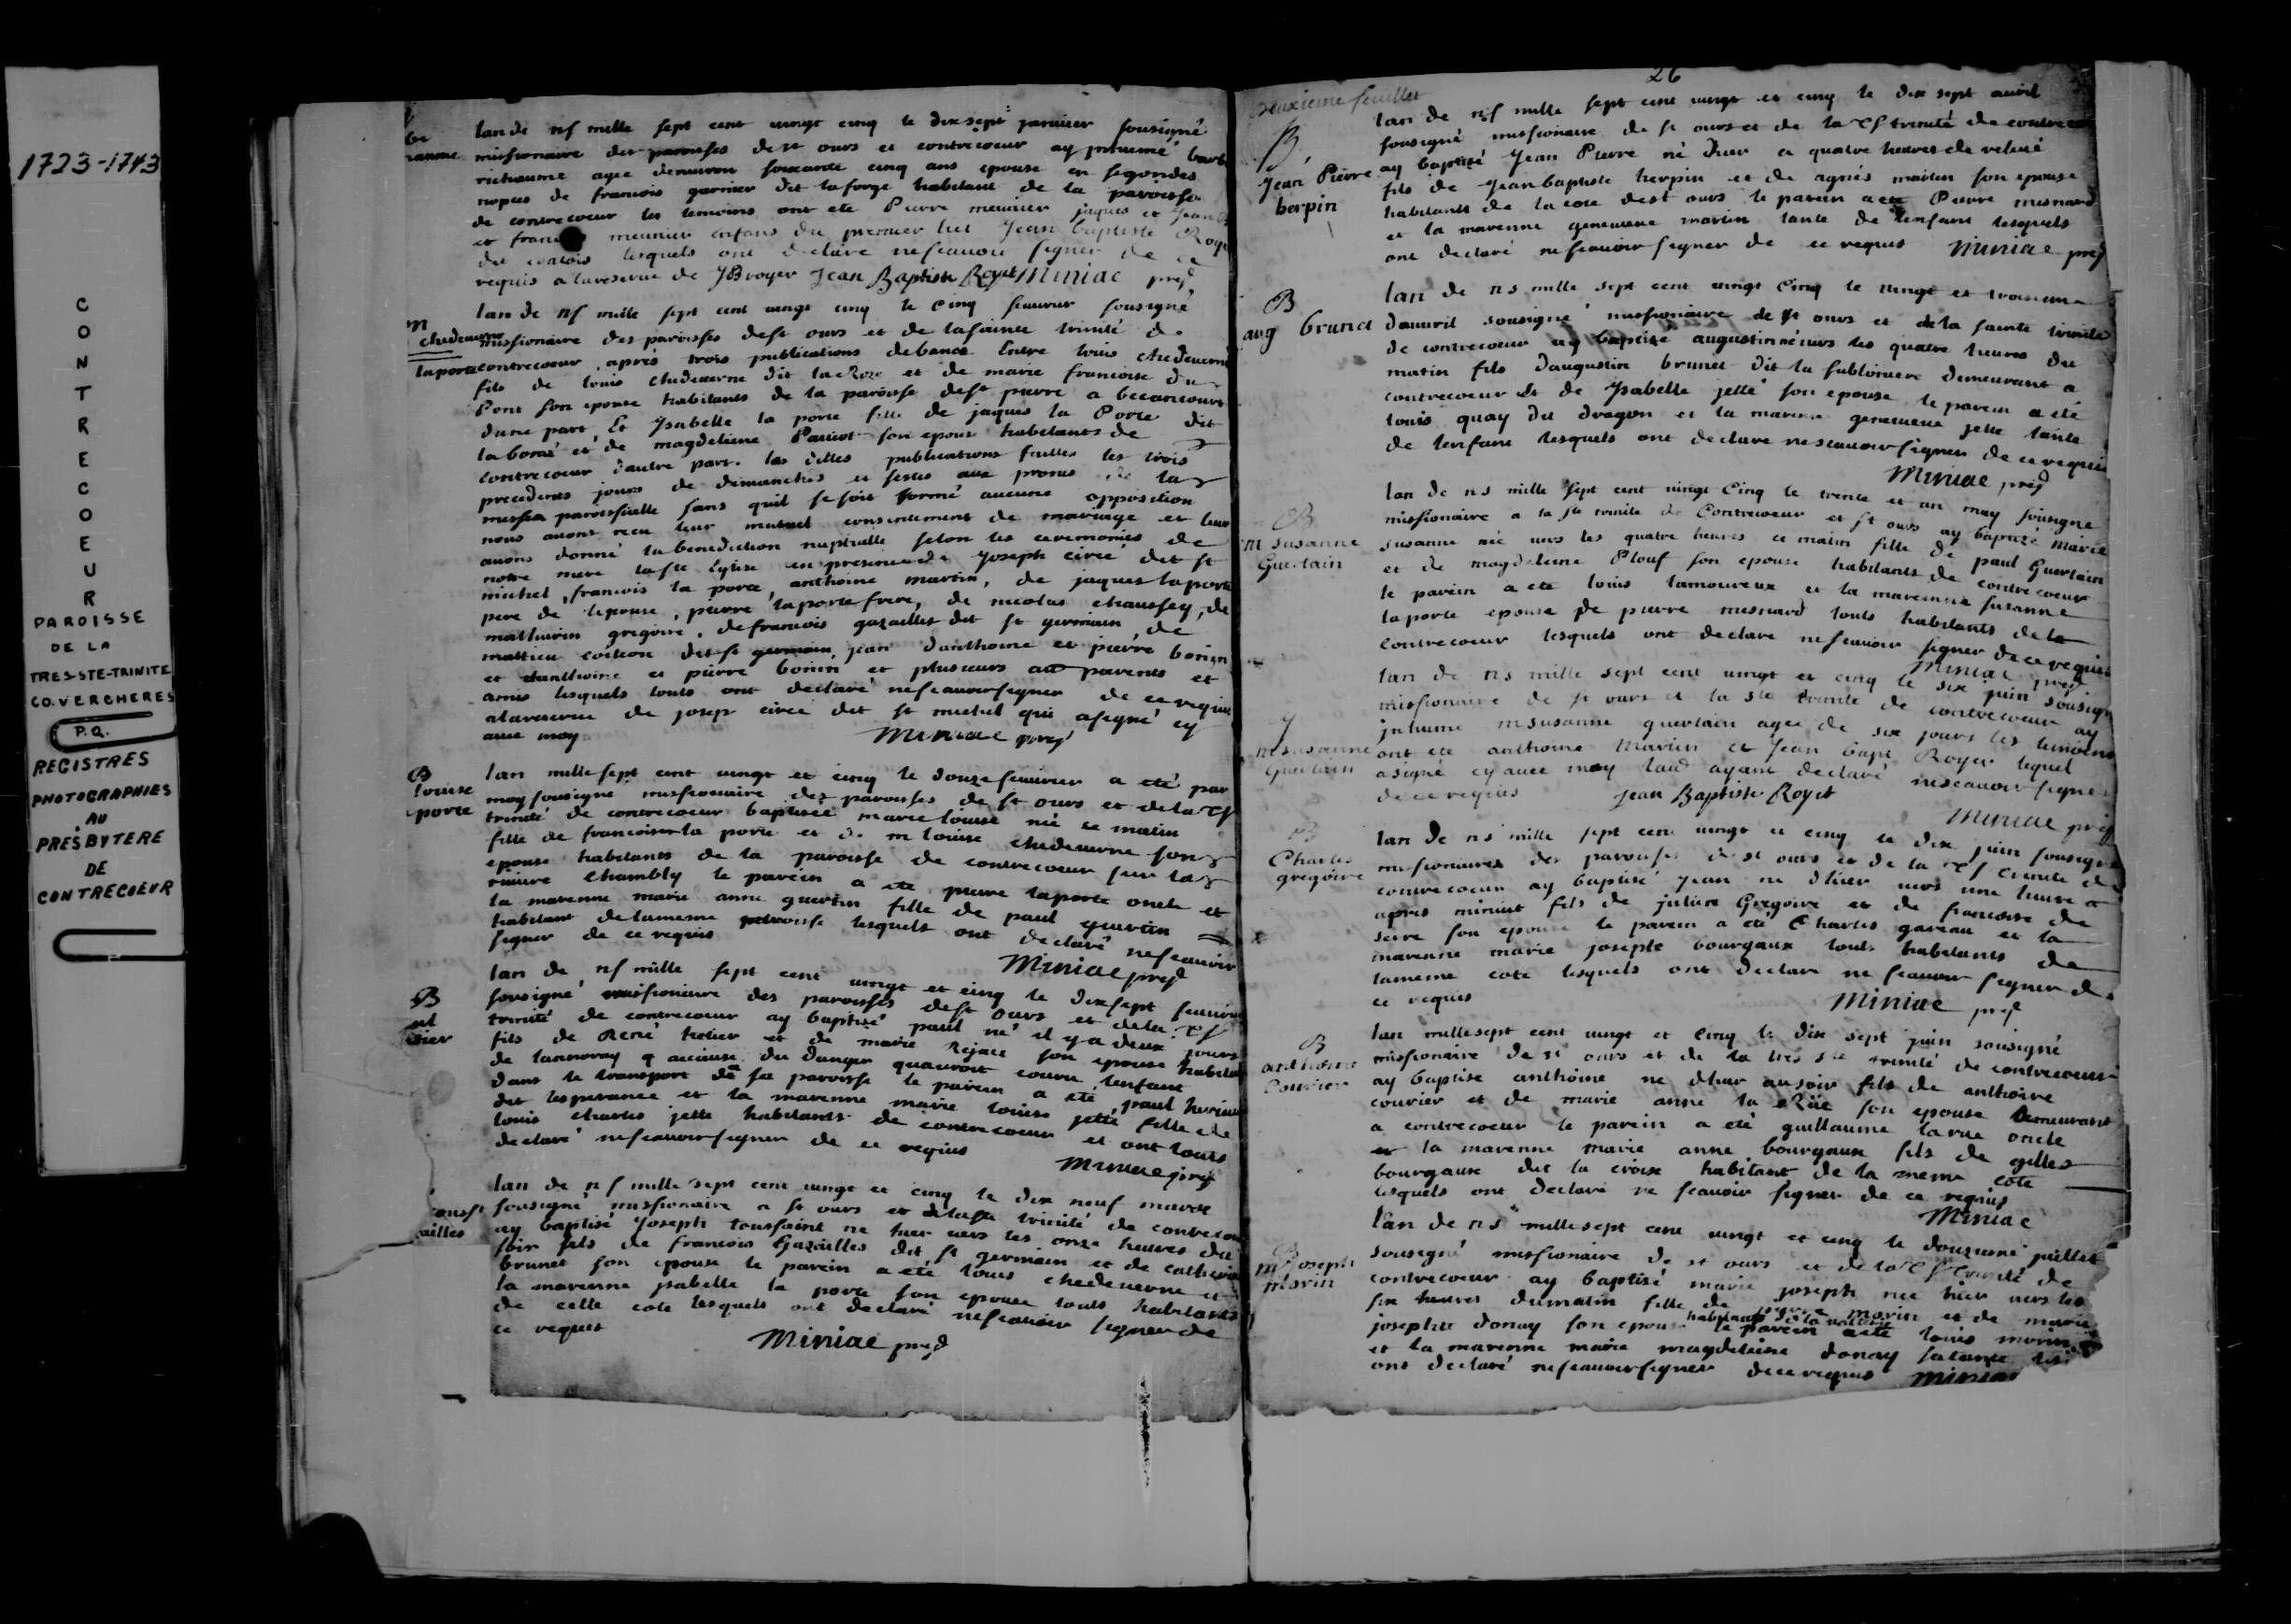 1723-1743
CONTRECOEUR
PAROISSE
DE LA
TRES-STE-TRINITE
CO. VERCHERES
P.Q.
REGISTRES
PHOTOGRAPHIES
AU
PRESBYTERE
DE
CONTRECOEUR
lan de nf mille sept cent vingt cinq le dix sept janvier sousigné
missionaire des paroisses de st ours et contrecoeur ay inhumé
richaume agee denviron soixante cinq ans epouse en segondes
nopces de francois garnier dit laforge habitant de la paroisse
de contrecoeur les temoins ont ete Pierre meunier jaques et
et meunier enfans du premier lict Jean baptiste
dit lesquels ont declare nescavoir signer de ce
requis a lareserve de JBroyer Jean Baptiste Royer Miniac
M
chedeuerne
laporte
lan de nf mille sept cent vingt cinq le cinq feuvrier sousigné
missionaire des paroisses de st ours et de lasainte trinité de
contrecoeur, aprés trois publications debancs Entre louis chedeuerne
fils de louis chedeuerne dit et de marie francoise du
Pont son epouse habitants de la paroisse de st pierre a beccancourt
dune part Et Ysabelle la porte fille de jaques la Porte dit
et de magdeleine son epouse habitants de
contrecoeur dautre part. les dittes publications faittes les trois
precedents jours de dimanches et festes aux prones de la
messe paroissialle sans quil se soit formé aucune opposition
nous avons receu leur mutuel consentement de mariage et leur
avons donné la benediction nuptialle selon les ceremonies de
notre mere la ste Eglise en presence de Joseph circé dit st
michel, francois la porte, anthoine martin, de jaques laporte
pere de lepouse, pierre laporte frere, de nicolas chaussey, de
mathurin gregoire, de francois gazailles dit st germain, de
mattieu dit st germain, jean danthoine et pierre bonin
et danthoine et pierre bonin et plusieurs parents et
amis lesquels touts ont declaré nescavoir signer de ce requis
alareserve de josep circé dit st michel qui asigné cy
avec moy
Miniac
B
louise
laporte
lan mille sept cent vingt et cinq le douze feuvrier a eté par
moy sousigné missionaire des paroisses de st ours et dela
trinité de contrecoeur baptisée marie louise née ce matin
fille de francois la porte et de m louise chedeuerne son
epouse habitants de la paroisse de contrecoeur sur la
riviere Chambly le parein a ete pierre laporte oncle et
la marenne marie anne guertin fille de paul guertin
habitant de lamesme paroisse lesquels ont declaré nescavoir
signer de ce requis
Miniac
B
lan de nf mille sept cent vingt et cinq le dixsept feuvrier
sousigné missionaire des paroisses de st ours et dela
trinité de contrecoeur ay baptisé paul né il y a deux jours
fils de René et de marie son epouse
de du danger quauroit couru lenfant
dans le transport de sa paroisse le parein a ete paul
dit lesperance et la marenne marie louise jetté fille de
louis charles jette habitants de contrecoeur et ont touts
declaré nescavoir signer de ce requis
Miniac
lan de nf mille sept cent vingt et cinq le dix neuf
sousigné missionaire a st ours et trinité de contrecoeur
ay baptisé Joseph toussaint ne hier vers les onze heures du
soir fils de francois Gazailles dit st germain et de catherine
brunet son epouse le parein a été louis chedeuerne et
la marenne ysabelle la porte son epouse touts habitants
de cette cote lesquels ont declaré nescavoir signer de
ce requis
Miniac
26
deuxieme feuillet
B
Jean Pierre
herpin
lan de nf mille sept cent vingt et cinq le dix sept avril
sousigné missionaire de st ours et de la trinité de contrecoeur
ay baptisé Jean Pierre né dhier a quatre heures de relevé
fils de Jean baptiste herpin et de agnés martin son epouse
habitants de la cote de st ours le parein a ete Pierre mesnard
et la marenne genevieve martin tante de lenfant lesquels
ont declaré nescavoir signer de ce requis Miniac
B
aug brunet
lan de ns mille sept cent vingt cinq le vingt et troisieme
davril sousigné missionaire de st ours et dela sainte trinité
de contrecoeur ay baptisé augustin né vers les quatre heures du
matin fils daugustin brunet dit la sablonniere demeurant a
contrecoeur et de Ysabelle jetté son epouse le parein a eté
louis quay dit dragon et la marenne genevieve jette tante
de lenfant lesquels ont declare nescavoir signer de ce requis
Miniac
B
m susanne
Guertain
lan de ns mille sept cent vingt cinq le trente et un may sousigné
missionaire a la ste trinité de Contrecoeur et st ours ay baptizé Marie
susanne née vers les quatre heures ce matin fille de paul Guertain
et de magdeleine Plouf son epouse habitants de contrecoeur
le parein a eté louis lamoureux et la marenne susanne
laporte epouse de pierre mesnard touts habitants de
contrecoeur lesquels ont declare nescavoir signer de ce requis
Miniac
m susanne
Guertain
lan de ns mille sept cent vingt et cinq le six juin sousigné
missionaire de st ours et la ste trinité de contrecoeur ay
inhumé m susanne guertain agee de six jours les temoins
ont ete anthoine Martin et Jean bapt Royer lequel
a signé cy avec moy ayant declaré nescavoir signer
de ce requis Jean Baptiste Royer
Miniac
B
Charles
gregoire
lan de ns mille sept cent vingt et cinq le dix juin sousigné
missionaire des paroisses de st ours et de la trinité de
contrecoeur ay baptisé jean ne dhier vers une heure
apres minuit fils de julien Gregoire et de francoise de
seve son epouse le parein a été Charles gareau et la
marenne marie josephe bourgaux touts habitants de
lameme cote lesquels ont declaré ne scavoir signer de
ce requis
Miniac
B
anthoine
Courier
lan mille sept cent vingt et cinq le dix sept juin sousigné
missionaire de st ours et de la tres ste trinité de contrecoeur
ay baptise anthoine ne dhier au soir fils de anthoine
courier et de marie anne la Rüe son epouse demeurant
a contrecoeur le parein a eté guillaume larue oncle
et la marenne marie anne bourgaux fils de gilles
bourgaux dit la croix habitant de la meme cote
lesquels ont declaré ne scavoir signer de ce requis
Miniac
B
m Joseph
morin
l'an de ns mille sept cent vingt et cinq le douzieme juillet
sousigné missionaire de st ours et de la trinité de
contrecoeur ay baptisé marie joseph née hier vers les
six heures dumatin fille de pierre morin et de marie
josephte donay son epouse le parein a eté louis morin
et la marenne marie magdeleine donay sa tante
ont declaré nescavoir signer de ce requis Miniac